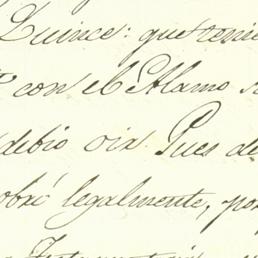 Quince: que tenie
con el Alamo
debio oir. Pues de
obró legalmente, por